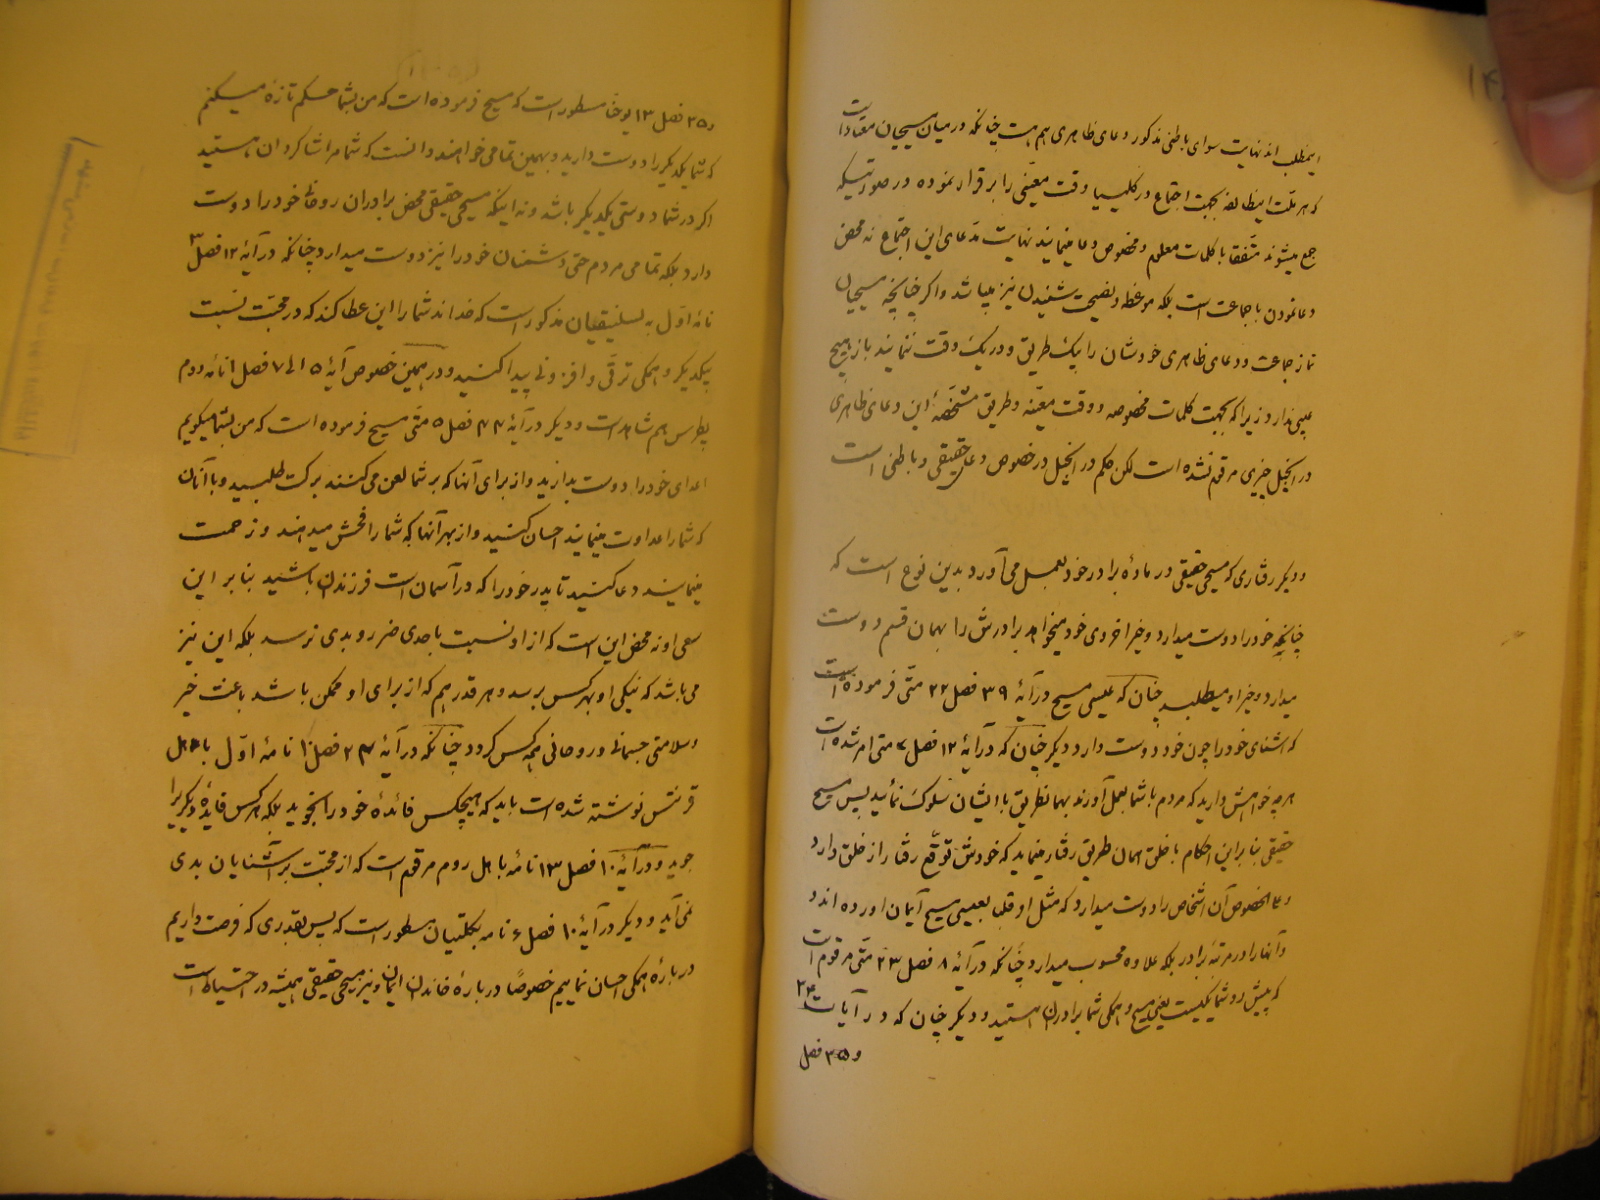 اینمطلب اند نهایت سوای باطنی مذکور دعای ظاهری هم هست چنانکه در میان مسیحیان معتاد است
که هر ملّت ایطایفه بجهت اجتماع در کلیسیا وقت معیّنی را برقرار نموده در صورتیکه
جمع میشوند متّفقا با کلمات معلوم و مخصوص دعا مینمایند نهایت مدّعای این اجتماع نه محض
دعا نمودن با جماعت است بلکه موعظه و نصیحت شنیدن نیز میباشد و اگر چنانچه مسیحیان
نماز جماعت و دعای ظاهری خودشان را بیک طریق و در یک وقت ننمایند باز هیچ
عیبی ندارد زیرا که بجهت کلمات مخصوصه و وقت معیّنه و طریق مشخّصهٔ این دعای ظاهری
در انجیل چیزی مرقوم نشده است لکن حکم در انجیل در خصوص دعای حقیقی و باطنی است
و دیگر رفتاری که مسیحی حقیقی در مادهٔ برادر خود بعمل می آورد بدین نوع است که
چنانچه خود را دوست میدارد و خیر اخروی خود میخواهد برادرش را بهمان قسم دوست
میدارد و خیر او میطلبد چنان که عیسی مسیح در آیهٔ ۳۹ فصل ۲۲ متّی فرموده است
که آشنای خود را چون خود دوست دار و دیگر چنان که در آیهٔ ۱۲ فصل ۷ متی امر شده است
هر چه خواهش دارید که مردم با شما بعمل آورند بهمانطریق با ایشان سلوک نمائید پس مسیحی
حقیقی بنابر این احکام با خلق همان طریق رفتار مینماید که خودش توقّع رفتار از خلق دارد
و علی الخصوص آن اشخاص را دوست میدارد که مثل او قلبا بعیسی مسیح آیمان اورده اند
و آنها را در مرتبهٔ برادر بلکه علاوه محسوب میدارد چنانکه در آیهٔ ۸ فصل ۲۳ متّی مرقوم است
که پیش رو شما یکیست یعنی مسیح و همگی شما برادران هستید و دیگر چنان که در آیات ۳۴
و ۳۵ فصل
و ۳۵ فصل ۱۳ یوحنّا مسطور است که مسیح فرموده است که من بشما حکم تازه میکنم
که شما یکدیگر را دوست دارید و بهمین تمامی خواهند دانست که شما مرا شاگردان هستید
اگر در شما دوستی یکدیگر باشد و نه اینکه مسیحی حقیقی محض برادران روحانی خود را دوست
دارد بلکه تمامی مردم حتی دشمنان خود را نیز دوست میدارد چنانکه در آیهٔ ۱۲ فصل ۳
نامهٔ اوّل به تسلنیقیان مذکور است که خداند شما را این عطا کند که در محبّت نسبت
بیکدیگر و همگی ترقّی و افزونی پیدا کنید و در همین خصوص آیهٔ ۵ الی ۷ فصل ۱ نامهٔ دوم
پطرس هم شاهد است و دیگر در آیهٔ ۴۴ فصل ۵ متّی مسیح فرموده است که من بشما میگویم
اعدای خود را دوست بدارید و از برای آنها که بر شما لعن می کنند برکت طلبید و با آنان
که شما را عداوت مینمایند احسان کنید و از بهر آنها که شما را فحش میدهند و زحمت
مینمایند دعا کنید تا پدر خود را که در آسمان است فرزندان باشید بنابر این
سعی او نه محض این است که از او نسبت باحدی ضرر و بدی نرسد بلکه این نیز
می باشد که نیکی او بهر کس برسد و هر قدر هم که از برای او ممکن باشد باعث خیر
و سلامتی جسمانی و روحانی همه کس گردد چنانکه در آیهٔ ۲۴ فصل ۱۰ نامهٔ اوّل باهل
قرنتس نوشته شده است باید که هیچکس فائدهٔ خود را نجوید بلکه هر کس فایدهٔ دیگریرا
جوید و در آیهٔ ۱۰ فصل ۱۳ نامهٔ باهل روم مرقوم است که از محبّت بر آشنایان بدی
نمی آید و دیگر در آیهٔ ۱۰ فصل ۶ نامه بگلتیان مسطور است که پس بقدری که فرصت داریم
در بارهٔ همگی احسان نماییم خصوصًا در بارهٔ خاندان ایمان و نیز مسیحی حقیقی همیشه در احتیاط است